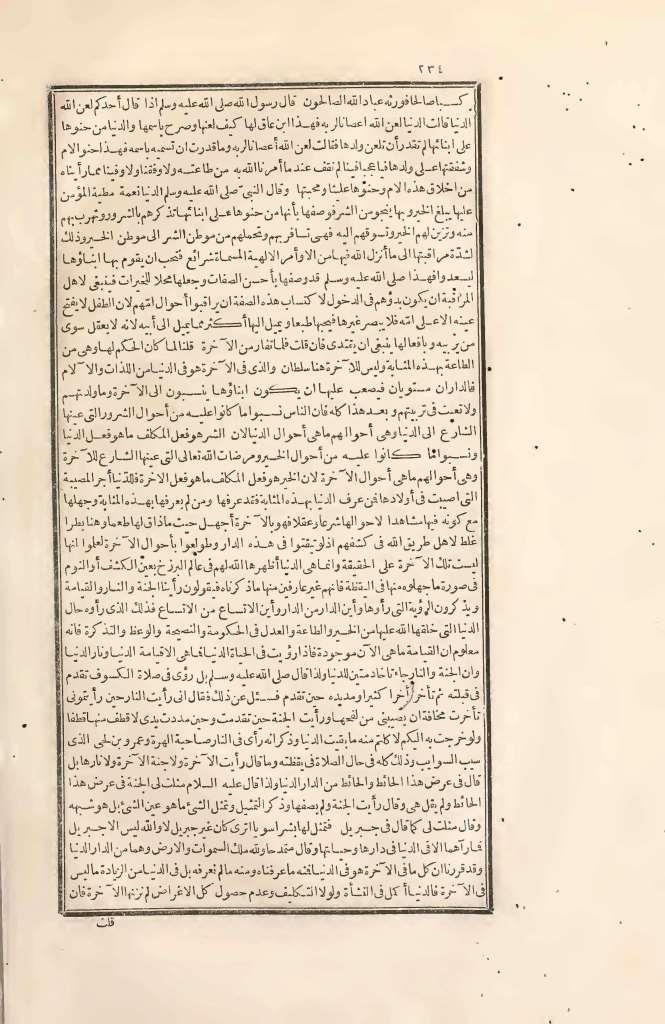 ٢٣٤
كـــبا صالحا فورثه عباد الله الصالحون قال رسول الله صلى الله عليه وسلم اذا قال أحدكم لعن الله
الدنيا قالت الدنيا لعن الله أعصانا لربه فهذا ابن عاق لها كيف لعنها وصرح باسمها والدنيا من حنوها
على ابنائها لم تقدر أن تلعن ولدها فقالت لعن الله أعصانا لربه وما قدرت ان تسميه باسمه فهذا حنو الام
وشفقتها على ولدها فيا عجبا فينا لم نقف عند ما أمرنا الله به من طاعته ولا وفقنا ولا وفينا مما رأيناه
من اخلاق هذه الام وحنوها علينا ومحبتها وقال النبي صلى الله عليه وسلم الدنيا نعمة مطية المؤمن
عليها يبلغ الخير وبها ينجو من الشر فوصفها بأنها من حنوها على ابنائها تذكرهم بالشرور وتهرب بهم
منه وتزين لهم الخير وتسوقهم اليه فهى تسافر بهم وتحملهم من موطن الشر الى موطن الخير وذلك
لشدة مراقبتها الى ما أنزل الله فيها من الاوامر الالهية المسماة شرائع فتحب ان يقوم بها ابناؤها
ليسعدوا فهذا صلى الله عليه وسلم قد وصفها بأحسن الصفات وجعلها محلا للخيرات فينبغى لاهل
المراقبة ان يكون بدؤهم فى الدخول لاكتساب هذه الصفة ان يراقبوا أحوال امهم لان الطفل لا يفتح
عينه الا على امه فلا يبصر غيرها فيحبها طبعا ويميل اليها أكثر مما يميل الى أبيه لانه لا يعقل سوى
من يربيه وبافعالها ينبغى ان يقتدى فان قلت فلما تغار من الآخرة قلنا لما كان الحكم لها وهى من
الطاعة بهذه المثابة وليس للآخرة هنا سلطان والذى فى الآخرة هو فى الدنيا من اللذات والآلام
فالداران مستويان فيصعب عليها ان يكون ابناؤها ينسبون الى الآخرة وما ولدتهم
ولا تعبت فى تربيتهم وبعد هذا كله فان الناس نسبوا ما كانوا عليه من أحوال الشرور التى عينها
الشارع الى الدنيا وهى أحوالهم ما هى أحوال الدنيا لان الشر هو فعل المكلف ما هو فعل الدنيا
ونسبوا ما كانوا عليه من أحوال الخير ومرضات الله تعالى التى عينها الشارع للآخرة
وهى أحوالهم ما هى أحوال الآخرة لان الخير هو فعل المكلف ما هو فعل الآخرة فللدنيا أجر المصيبة
التى اصيبت فى أولادها فمن عرف الدنيا بهذه المثابة فقد عرفها ومن لم يعرفها بهذه المثابة وجهلها
مع كونه فيها مشاهدا لاحوالها شرعا وعقلا فهو بالآخرة أجهل حيث ما ذاق لها طعما وهنا يطرا
غلط لاهل طريق الله فى كشفهم اذ لو تيقنوا فى هذه الدار وطولعوا بأحوال الآخرة لعلموا انها
ليست تلك الآخرة على الحقيقة وانما هى الدنيا أظهرها الله لهم فى عالم البرزخ بعين الكشف أو النوم
فى صورة ما جهلوه منها فى اليقظة فانهم غير عارفين منها ما ذكرناه فيقولون رأينا الجنة والنار والقيامة
ويذكرون الرؤية التى رأوها وأين الدار من الدار وأين الاتساع من الاتساع فذلك الذى رأوه حال
الدنيا التى خلقها الله عليها من الخير والطاعة والعدل فى الحكومة والنصيحة والوعظ والتذكرة فانه
معلوم ان القيامة ما هى الآن موجودة فاذا رؤيت فى الحياة الدنيا فما هى الا قيامة الدنيا ونار الدنيا
وان الجنة والنار جاءتا خادمتين للدنيا ولذا قال صلى الله عليه وسلم بل رؤى فى صلاة الكسوف تقدم
فى قبلته ثم تأخر أخرا كثيرا ومد يده حين تقدم فسئل عن ذلك فقال انى رأيت النار حين رأيتمونى
تأخرت مخافة ان يصيبنى من لفحها ورأيت الجنة حين تقدمت وحين مددت يدى لاقطف منها قطفا
ولو خرجت به اليكم لاكلتم منه ما بقيت الدنيا وذكر انه رأى فى النار صاحبة الهرة وعمرو بن لحى الذى
سيب السوايب وذلك كله فى حال الصلاة فى يقظته وما قال رأيت الآخرة ولا جنة الآخرة ولا نارها بل
قال فى عرض هذا الحائط والحائط من الدار الدنيا ولذا قال عليه السلام مثلت لى الجنة فى عرض هذا
الحائط ولم يقل هى وقال رأيت الجنة ولم يصفها وذكر التمثيل وتمثل الشئ ما هو عين الشئ بل هو شبهه
وقال مثلت لى كما قال فى جبريل فتمثل لها بشرا سويا اترى كان غير جبريل لا والله ليس الا جبريل
فما رآهما الا فى الدنيا فى دارها وحياتها وقال متمدحا ولله ملك السموات والارض وهما من الدار الدنيا
وقد قررنا ان كل ما فى الآخرة هو فى الدنيا فمنه ما عرفناه ومنه ما لم نعرفه بل فى الدنيا من الزيادة ما ليس
فى الآخرة فالدنيا أكمل فى النشأة ولولا التكليف وعدم حصول كل الاغراض لم تزنها الآخرة فان
قلت